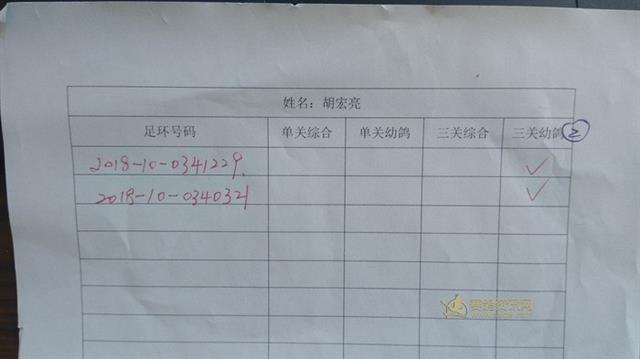 姓名：胡宏亮
足环号码 单关综合 单关幼鸽 三关综合 三关幼鸽 2
2018-10-0341229 ✓
2018-10-0340321 ✓